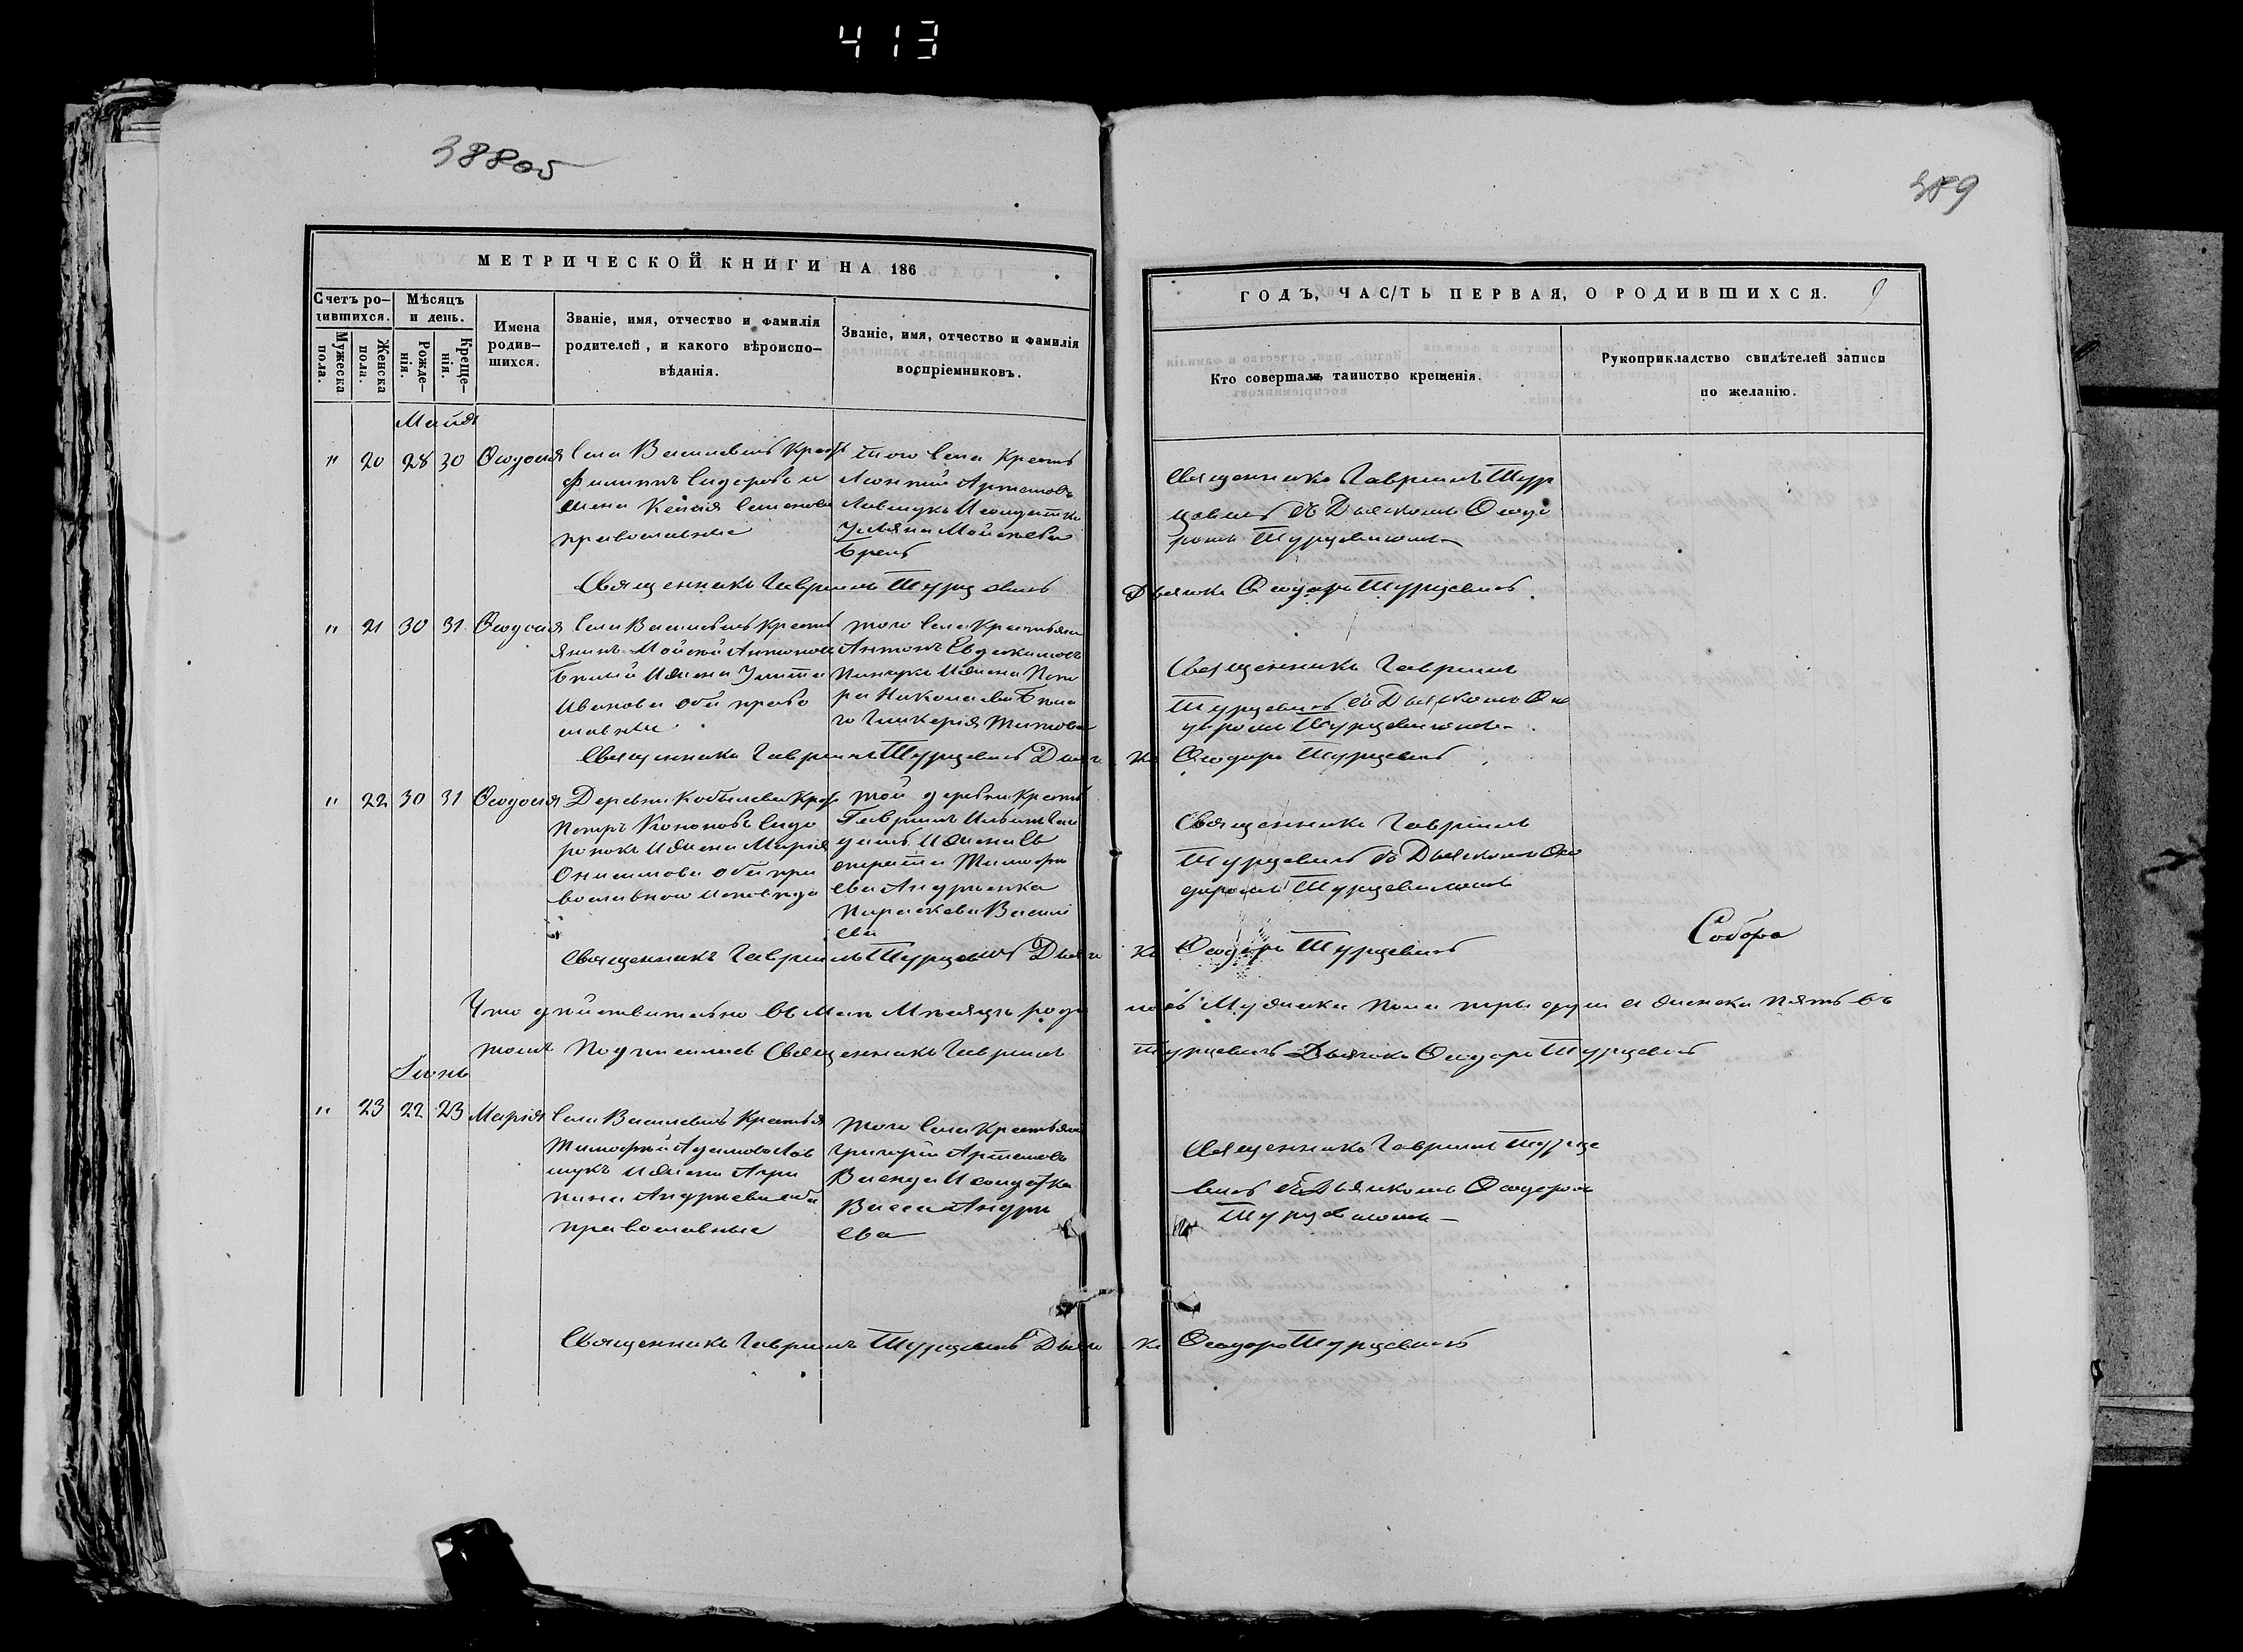 413
388об
389
МЕТРИЧЕСКОЙ КНИГИ НА 186
Счетъ ро-
дившихся.
Мужеска
пола.
Женска
пола.
Мѣсяцъ
и день.
Рожде-
нія.
Креще-
нія.
Имена
родив-
шихся.
Званіе, имя, отчество и фамилія
родителей, и какого вѣроиспо-
вѣданія.
Званіе, имя, отчество и фамилія
воспріемниковъ.
ГОДЪ, ЧАСТЬ ПЕРВАЯ, О РОДИВШИХСЯ. 9
Кто совершалъ таинство крещенія.
Рукоприкладство свидѣтелей записи
по желанію.
Майя
" 20 28 30 Ѳеодосія
Села Василевичъ Крест
Филиппъ Сидоровъ и
жена Ксенія Семенова
православные
того села Крестъ
Леонтій Артемовъ
Левшукъ И солдатка
Ульяна Мойсеева
Священникъ Гавріилъ Шур
цевичъ съ Дьячкомъ Ѳеодо
ромъ Шурцевичомъ
Священникъ Гавріилъ Шурцевичъ
Дьячокъ Ѳеодоръ Шурцевичъ
" 21 30 31 Ѳеодосія
Села Василевичъ Крестъ
янинъ Мойсей Антоновъ
Ижена Улита
Иванова оба право
славные
того села Крестьян
Антонъ Евдокимовъ
Ижена
Николаева
Гликерія Титова
Священникъ Гавріилъ
Шурцевичъ съ Дьячкомъ Ѳео
доромъ Шурцевичомъ
Священникъ Гавріилъ Шурцевичъ Дьячо
къ Ѳеодоръ Шурцевичъ
" 22 30 31 Ѳеодосія
Деревни Кобылева Крест
Петръ Кононовъ Сидо
ренокъ Ижена Марія
Онисимова оба пра
вославного исповѣда
той деревни Крестъ
Гавріилъ
Ижена Ев
Тимофе
ева Андриенка
Параскева Васил
ева
Священникъ Гавріилъ
Шурцевичъ съ Дьячкомъ Ѳео
доромъ Шурцевичомъ
Собора
Священникъ Гавріилъ Шурцевичъ Дьячо
къ Ѳеодоръ Шурцевичъ
Что дѣйствительно въ Маѣ Мѣсяцѣ роди
лось Мужеска пола три души а женска пять въ
томъ Подписался Священникъ Гавріилъ
Шурцевичъ Дьячокъ Ѳеодоръ Шурцевичъ
Іюнь
" 23 22 23 Марія
Села Василевичъ Крестья
Тимофѣй Адамовъ Лев
шукъ Ижена Агри
пина Андреева оба
православные
того села Крестьян
Григорій Артемовъ
И солдатка
Васса Андре
ева
Священникъ Гавріилъ Шурце
вичъ съ Дьячкомъ Ѳеодоромъ
Шурцевичомъ
Священникъ Гавріилъ Шурцевичъ Дьячо
къ Ѳеодоръ Шурцевичъ